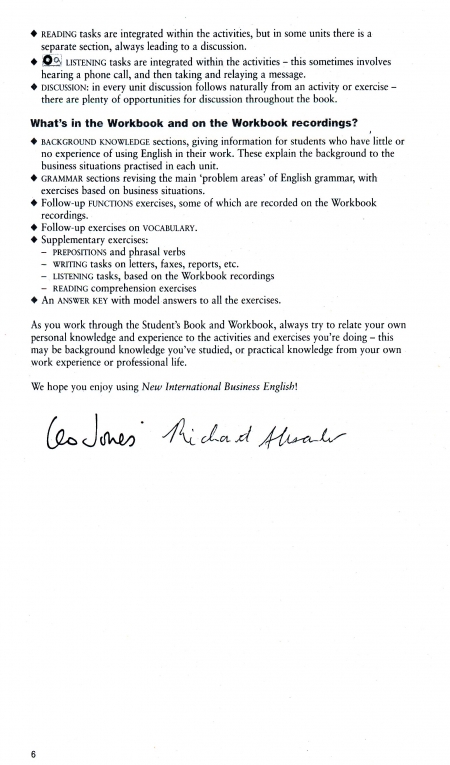 ◆ READING tasks are integrated within the activities, but in some units there is a
separate section, always leading to a discussion.
◆ LISTENING tasks are integrated within the activities – this sometimes involves
hearing a phone call, and then taking and relaying a message.
◆ DISCUSSION: in every unit discussion follows naturally from an activity or exercise –
there are plenty of opportunities for discussion throughout the book.
What's in the Workbook and on the Workbook recordings?
◆ BACKGROUND KNOWLEDGE sections, giving information for students who have little or
no experience of using English in their work. These explain the background to the
business situations practised in each unit.
◆ GRAMMAR sections revising the main 'problem areas' of English grammar, with
exercises based on business situations.
◆ Follow-up FUNCTIONS exercises, some of which are recorded on the Workbook
recordings.
◆ Follow-up exercises on VOCABULARY.
◆ Supplementary exercises:
– PREPOSITIONS and phrasal verbs
– WRITING tasks on letters, faxes, reports, etc.
– LISTENING tasks, based on the Workbook recordings
– READING comprehension exercises
◆ An ANSWER KEY with model answers to all the exercises.
As you work through the Student's Book and Workbook, always try to relate your own
personal knowledge and experience to the activities and exercises you're doing – this
may be background knowledge you've studied, or practical knowledge from your own
work experience or professional life.
We hope you enjoy using New International Business English!
Leo Jones Richard
6